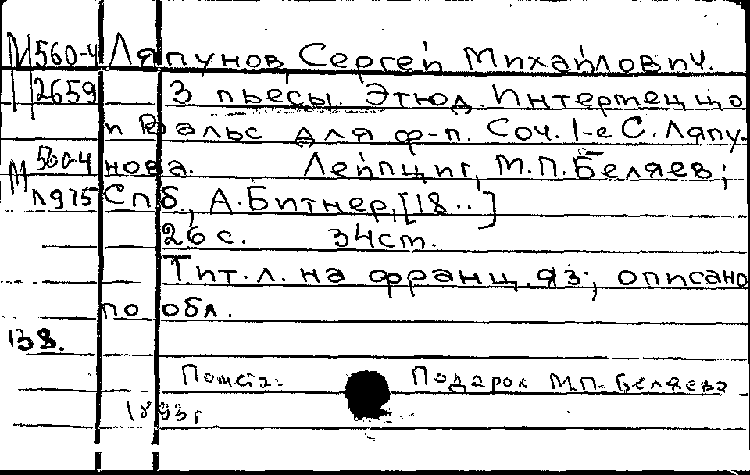 М 560-4 Ляпунов, Сергей Михайлович.
2659 3 пьесы. Этюд. Интермеццо
и Вальс для ф-п. Соч. 1-е С. Ляпу-
М 560-4 нова. Лейпциг, М.П. Беляев;
Л975 Спб., А. Битнер, [18..]
26 с. 34 см.
Тит. л. на франц. яз.; описано
по обл.
138.
Помета: Подарок М.П. Беляева
1893 г